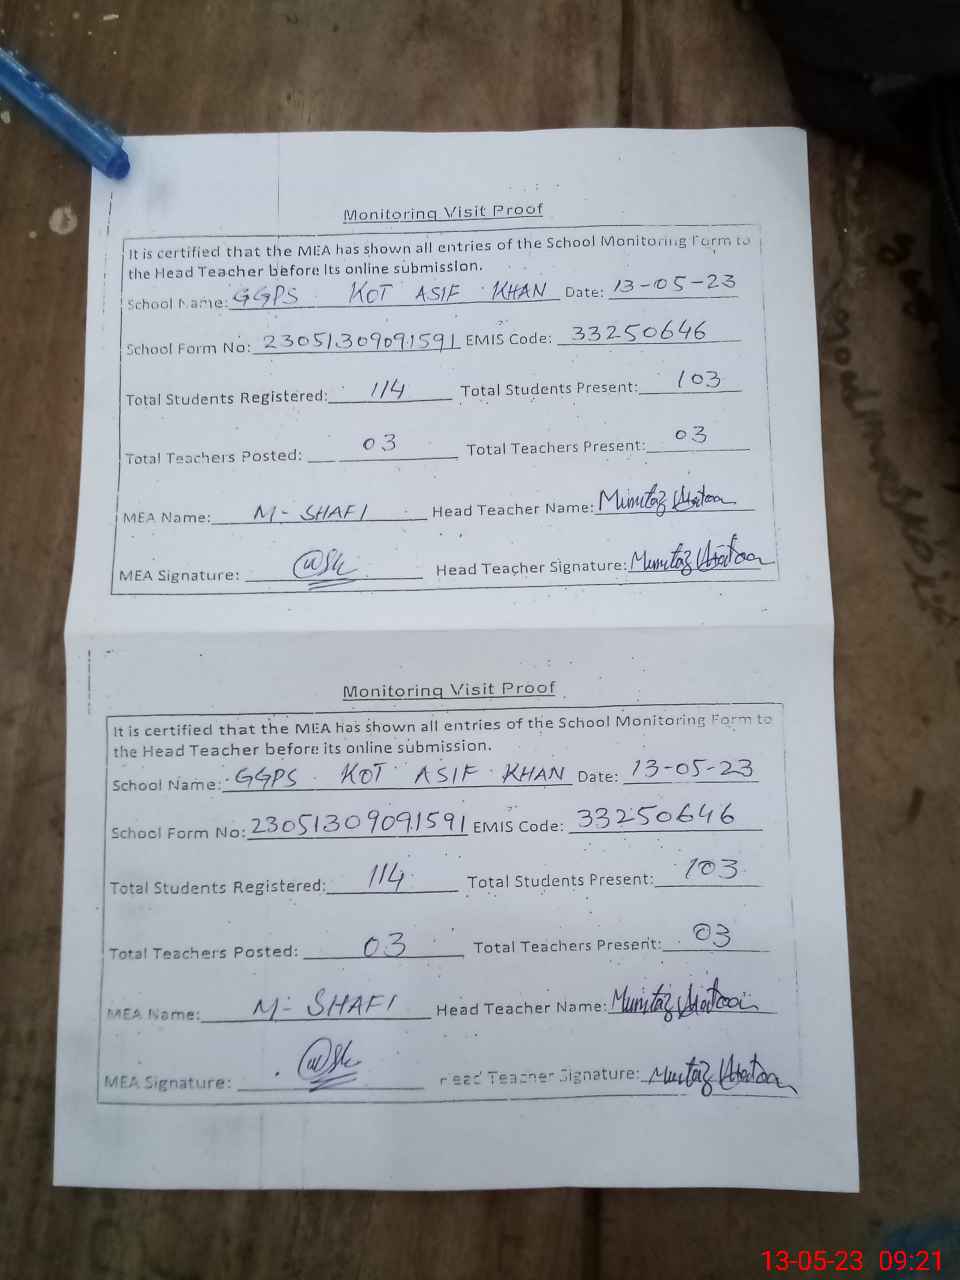 Monitoring Visit Proof
It is certified that the MEA has shown all entries of the School Monitoring Form to
the Head Teacher before its online submission.
School Name: GGPS KOT ASIF KHAN Date: 13-05-23
School Form No: 23051309091591 EMIS Code: 33250646
Total Students Registered: 114 Total Students Present: 103
Total Teachers Posted: 03 Total Teachers Present: 03
MEA Name: M-SHAFI Head Teacher Name: Mumtaz
MEA Signature: Head Teacher Signature: Mumtaz
Monitoring Visit Proof
It is certified that the MEA has shown all entries of the School Monitoring Form to
the Head Teacher before its online submission.
School Name: GGPS KOT ASIF KHAN Date: 13-05-23
School Form No: 23051309091591 EMIS Code: 33250646
Total Students Registered: 114 Total Students Present: 103
Total Teachers Posted: 03 Total Teachers Present: 03
MEA Name: M-SHAFI Head Teacher Name: Mumtaz
MEA Signature: Head Teacher Signature: Mumtaz
13-05-23 09:21